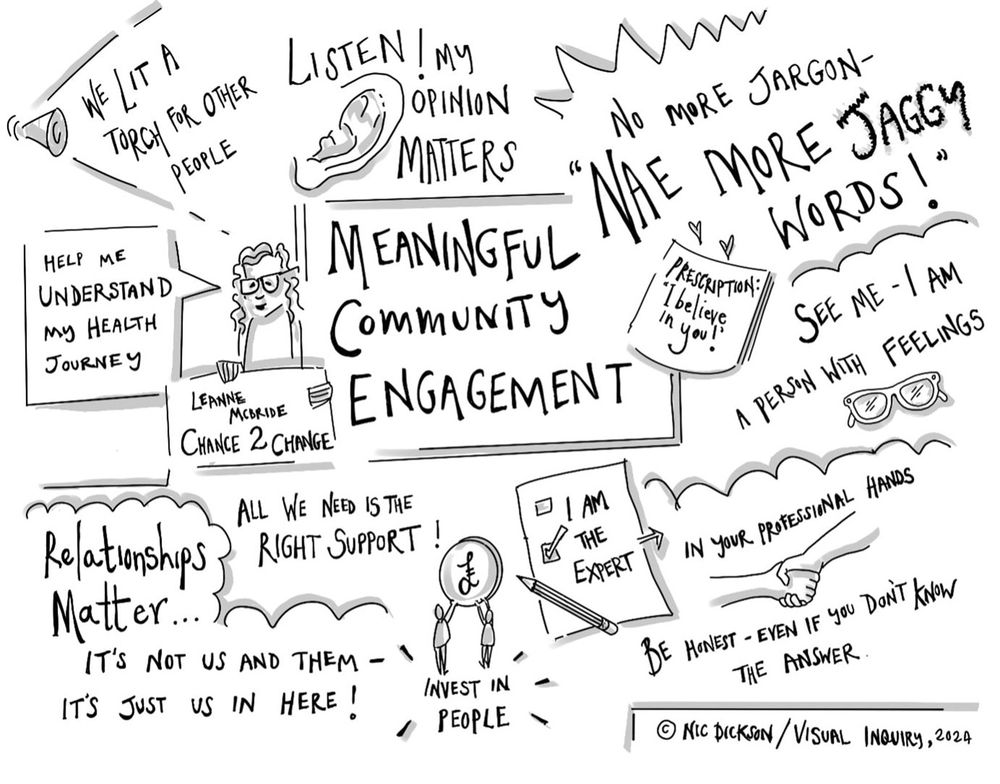 WE LIT A
TORCH FOR OTHER
PEOPLE
LISTEN! MY
OPINION
MATTERS
NO MORE JARGON-
"NAE MORE JAGGY
WORDS!"
HELP ME
UNDERSTAND
MY HEALTH
JOURNEY
LEANNE
MCBRIDE
CHANCE 2 CHANGE
MEANINGFUL
COMMUNITY
ENGAGEMENT
PRESCRIPTION:
"I believe
in you!"
SEE ME - I AM
A PERSON WITH FEELINGS
Relationships
Matter...
IT'S NOT US AND THEM -
IT'S JUST US IN HERE!
ALL WE NEED IS THE
RIGHT SUPPORT!
£
INVEST IN
PEOPLE
I AM
THE
EXPERT
IN YOUR PROFESSIONAL HANDS
BE HONEST - EVEN IF YOU DON'T KNOW
THE ANSWER.
© NIC DICKSON / VISUAL INQUIRY, 2024